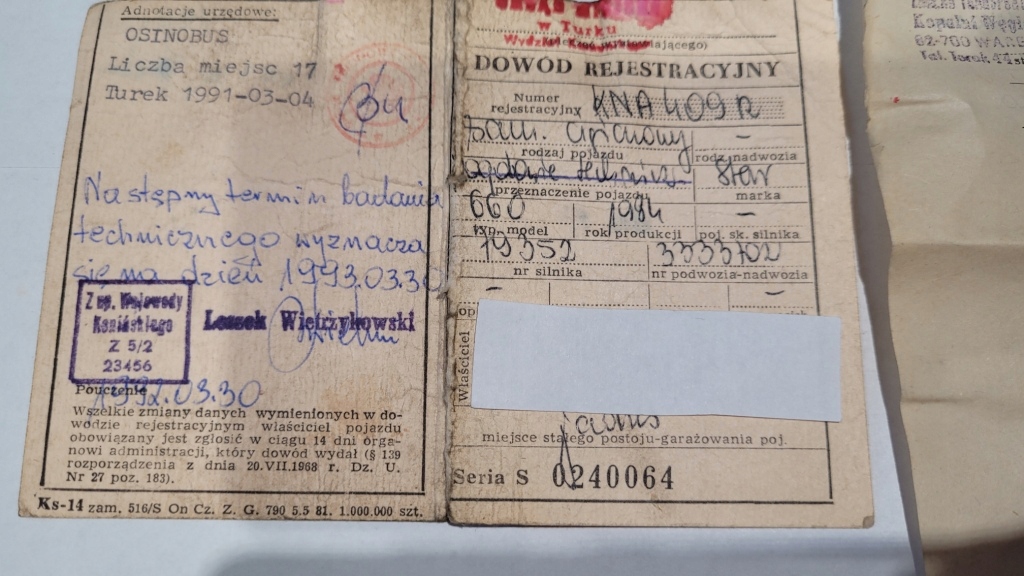 Adnotacje urzędowe:
OSINOBUS
Liczba miejsc 17
Turek 1991-03-04
Następny termin badania
technicznego wyznacza
się na dzień 1993.03.30
Z up. Wojewody
Konińskiego
Z 5/2
23456
Leszek Wietrzykowski
1992.03.30
Pouczenie
Wszelkie zmiany danych wymienionych w do-
wodzie rejestracyjnym właściciel pojazdu
obowiązany jest zgłosić w ciągu 14 dni orga-
nowi administracji, który dowód wydał (§ 139
rozporządzenia z dnia 20.VII.1968 r. Dz. U.
Nr 27 poz. 183).
Ks-14 zam. 516/S On Cz. Z. G. 790 5.5 81. 1.000.000 szt.
w Turku
DOWÓD REJESTRACYJNY
Numer
rejestracyjny KNA 409R
Sam. ciężarowy -
rodzaj pojazdu rodz. nadwozia
Star
przeznaczenie pojazdu marka
660 1984 -
typ, model rok produkcji poj. sk. silnika
19352 3333702
nr silnika nr podwozia-nadwozia
- -
op
Właściciel
miejsce stałego postoju-garażowania poj.
Seria S 0240064
62-700